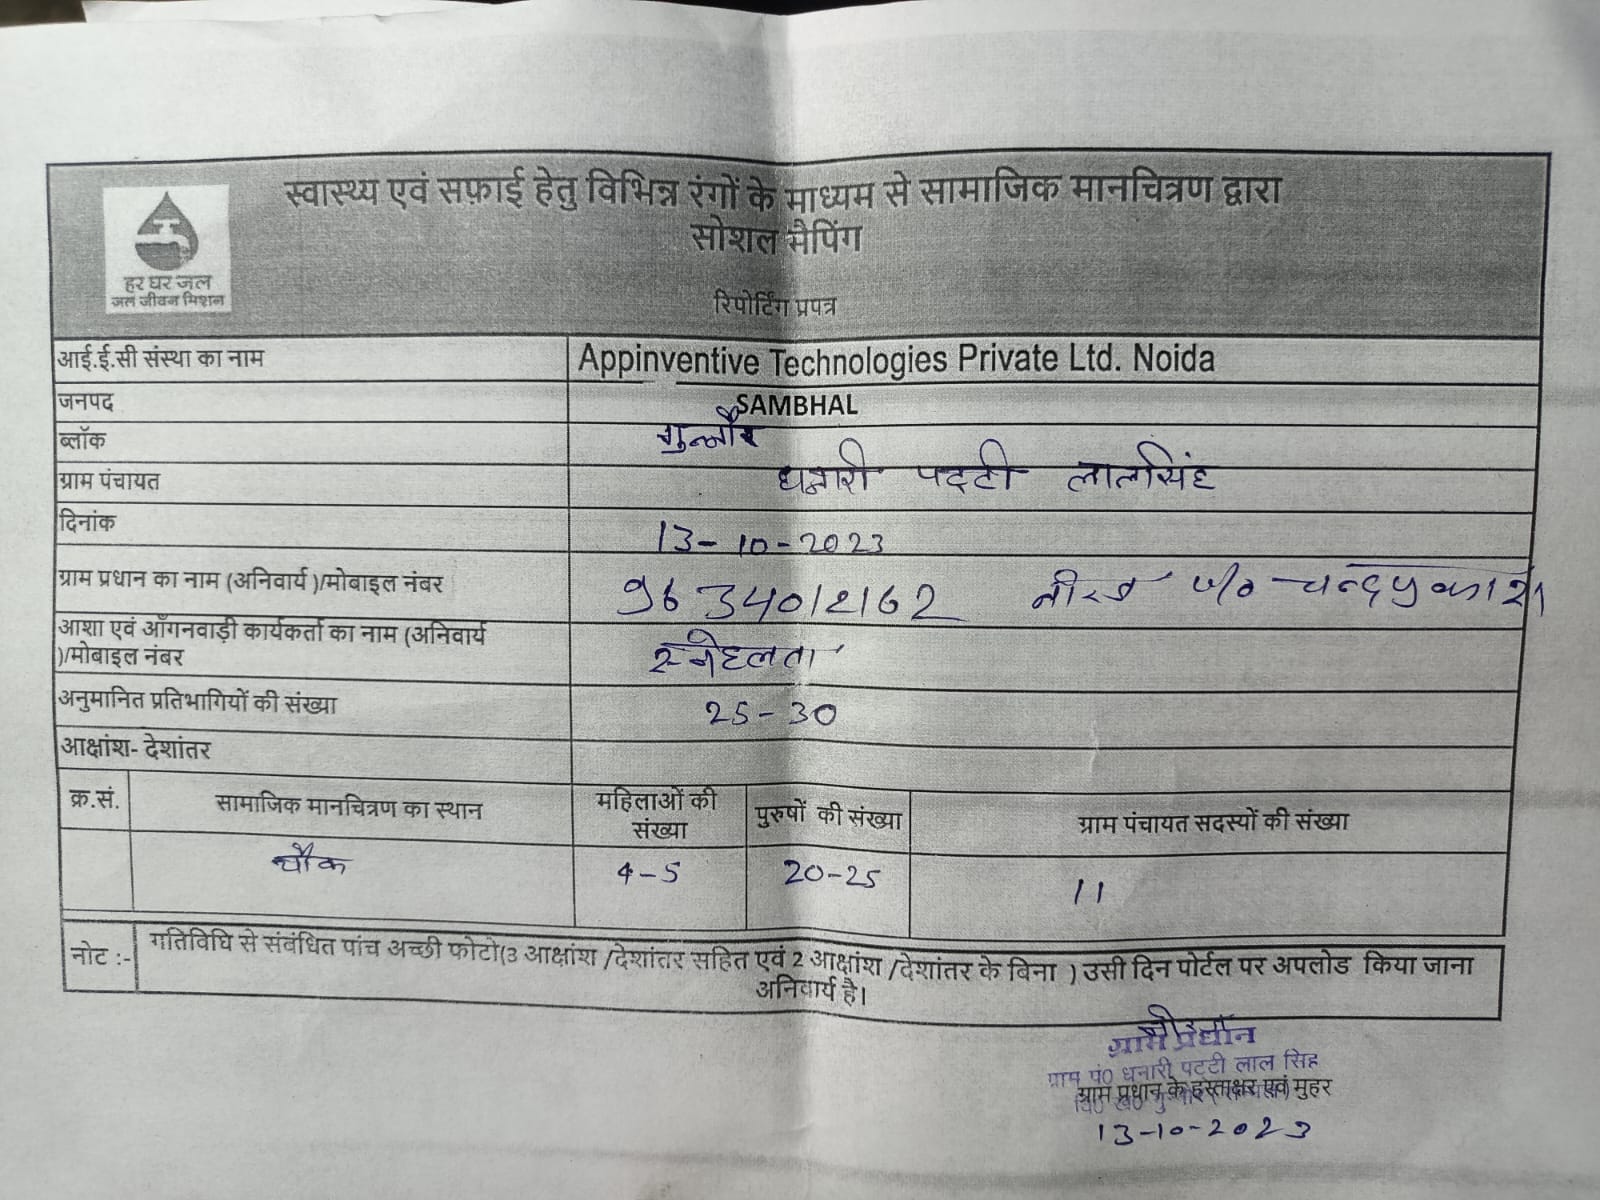 स्वास्थ्य एवं सफ़ाई हेतु विभिन्न रंगों के माध्यम से सामाजिक मानचित्रण द्वारा
सोशल मैपिंग
हर घर जल
जल जीवन मिशन
रिपोर्टिंग प्रपत्र
आई.ई.सी संस्था का नाम Appinventive Technologies Private Ltd. Noida
जनपद SAMBHAL
ब्लॉक गुन्नौर
ग्राम पंचायत धनारी पट्टी लालसिंह
दिनांक 13-10-2023
ग्राम प्रधान का नाम (अनिवार्य )/मोबाइल नंबर 9634012162 नीरज चन्द्रप्रकाश
आशा एवं आँगनवाड़ी कार्यकर्ता का नाम (अनिवार्य
)/मोबाइल नंबर स्नेहलता
अनुमानित प्रतिभागियों की संख्या 25-30
आक्षांश- देशांतर
क्र.सं. सामाजिक मानचित्रण का स्थान महिलाओं की संख्या पुरुषों की संख्या ग्राम पंचायत सदस्यों की संख्या
चौक 4-5 20-25 11
नोट :- गतिविधि से संबंधित पांच अच्छी फोटो(3 आक्षांश /देशांतर सहित एवं 2 आक्षांश /देशांतर के बिना ) उसी दिन पोर्टल पर अपलोड किया जाना
अनिवार्य है।
ग्राम प्रधान
ग्राम पं0 धनारी पट्टी लाल सिंह
ग्राम प्रधान के हस्ताक्षर एवं मुहर
13-10-2023